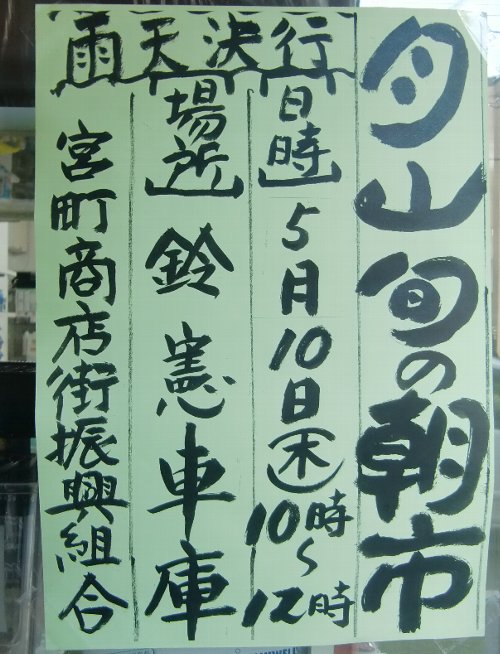 月山旬の朝市
雨天決行
日時 5月10日(木)10時~12時
場所 鈴憲車庫
宮町商店街振興組合